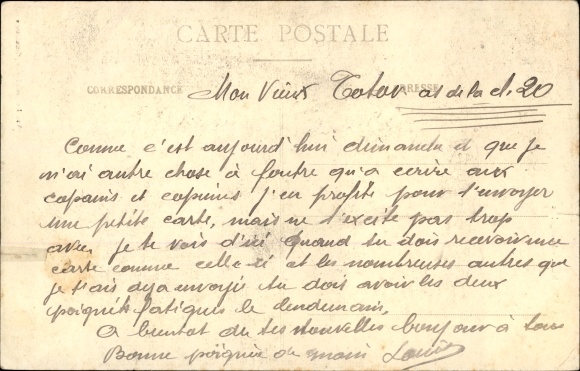 CARTE POSTALE
CORRESPONDANCE
ADRESSE
Mon Vieux Totor as de la cl. 20
Comme c'est aujourd'hui dimanche et que je
n'ai autre chose à foutre qu'a ecrire aux
copains et copines j'en profite pour t'envoyer
une petite carte, mais ne t'excite pas trop
avec, je te vois d'ici quand tu dois recevoir une
carte comme celle-ci et les nombreuses autres que
je t'ais deja envoyé tu dois avoir les deux
poignets fatigués le lendemain,
A bientot de tes nouvelles bonjour à tous
Bonne poignée de main Louis